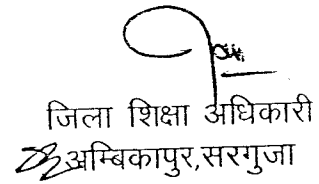 जिला शिक्षा अधिकारी
अम्बिकापुर,सरगुजा